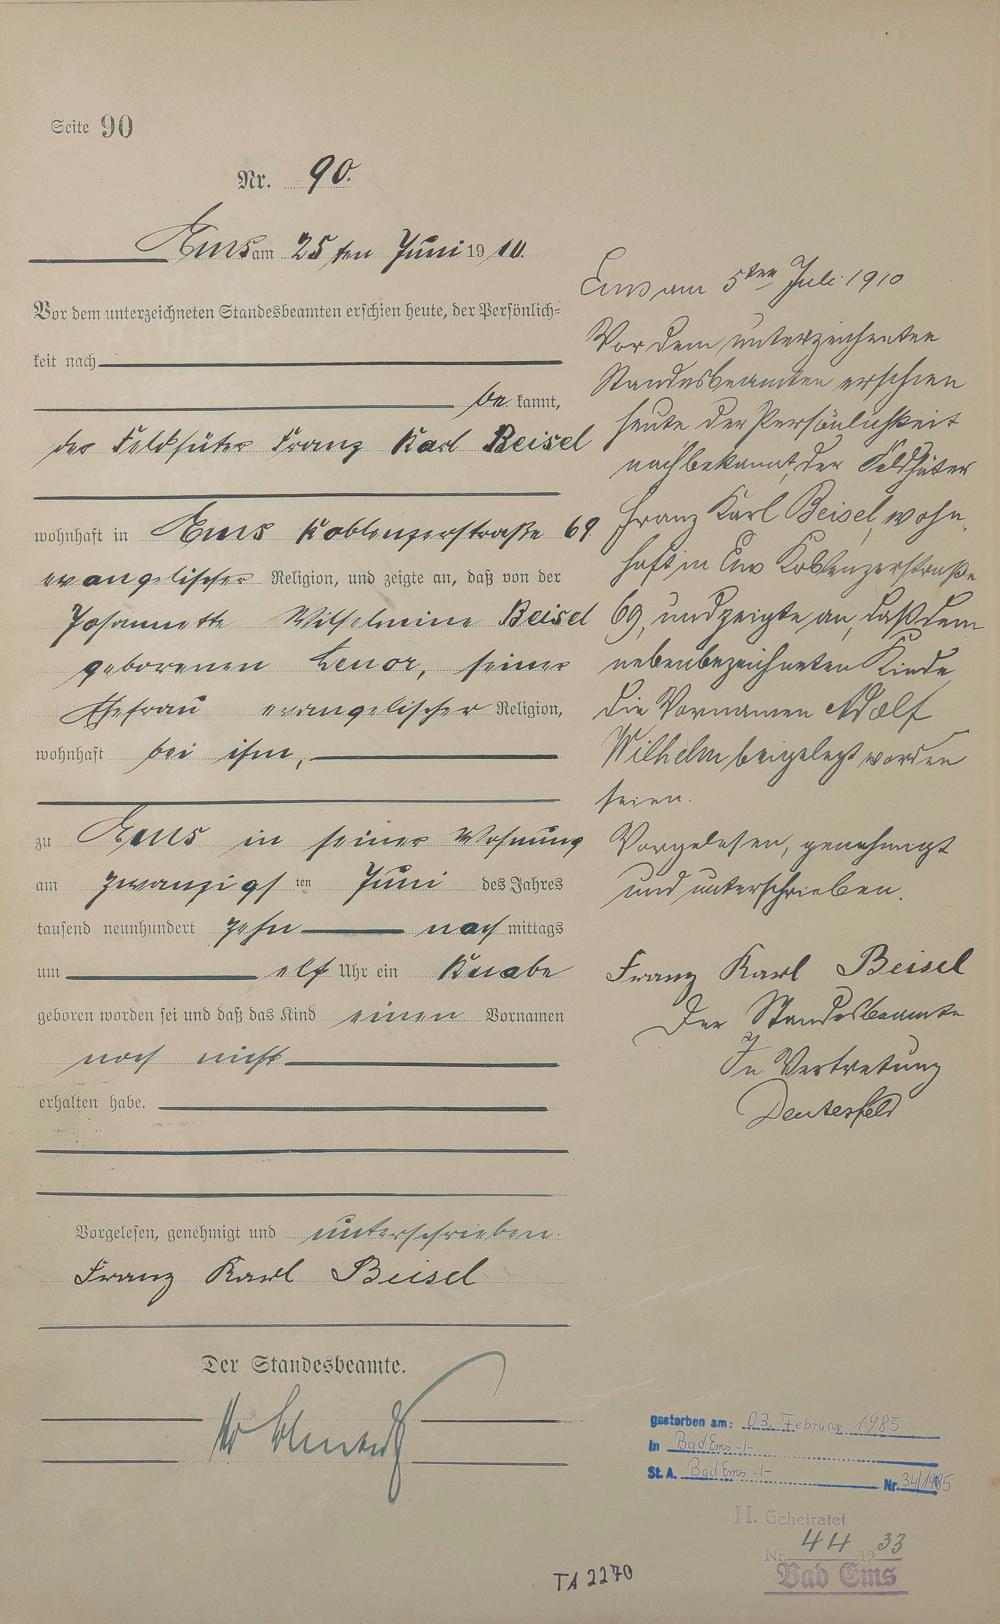 Seite 90
Nr. 90.
Ems am 25ten Juni 1910.
Vor dem unterzeichneten Standesbeamten erschien heute, der Persönlich-
keit nach
be kannt,
der Feldhüter Franz Karl Beisel
wohnhaft in Ems Koblenzerstraße 69
evangelischer Religion, und zeigte an, daß von der
Johannette Wilhelmine Beisel
geborenen Lenor, seiner
Ehefrau evangelischer Religion,
wohnhaft bei ihm,
zu Ems in seiner Wohnung
am zwanzigsten Juni des Jahres
tausend neunhundert zehn nach mittags
um elf Uhr ein Knabe
geboren worden sei und daß das Kind einen Vornamen
noch nicht
erhalten habe.
Vorgelesen, genehmigt und unterschrieben.
Franz Karl Beisel
Der Standesbeamte.
Ems am 5ten Juli 1910
Vor dem unterzeichneten
Standesbeamten erschien
heute der Persönlichkeit
nach bekannt, der Feldhüter
Franz Karl Beisel, wohn-
haft in Ems Koblenzerstraße
69, und zeigte an, daß dem
nebenbezeichneten Kinde
die Vornamen Adolf
Wilhelm beigelegt worden
seien.
Vorgelesen, genehmigt
und unterschrieben.
Franz Karl Beisel
Der Standesbeamte
In Vertretung
gestorben am: 03. Februar 1985
in Bad Ems -/-
St. A. Bad Ems -/- Nr. 34/1985
H. Geheiratet
Nr. 44 19 33
Bad Ems
TA 2270